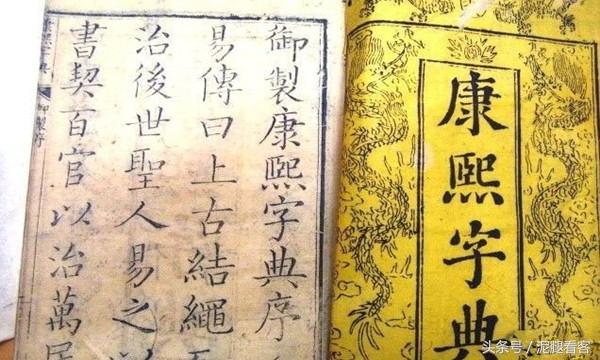 康熙字典
御製康熙字典序
易傳曰上古結繩
治後世聖人易之以
書契百官以治萬民
康熙字典
头条号／泥腿看客